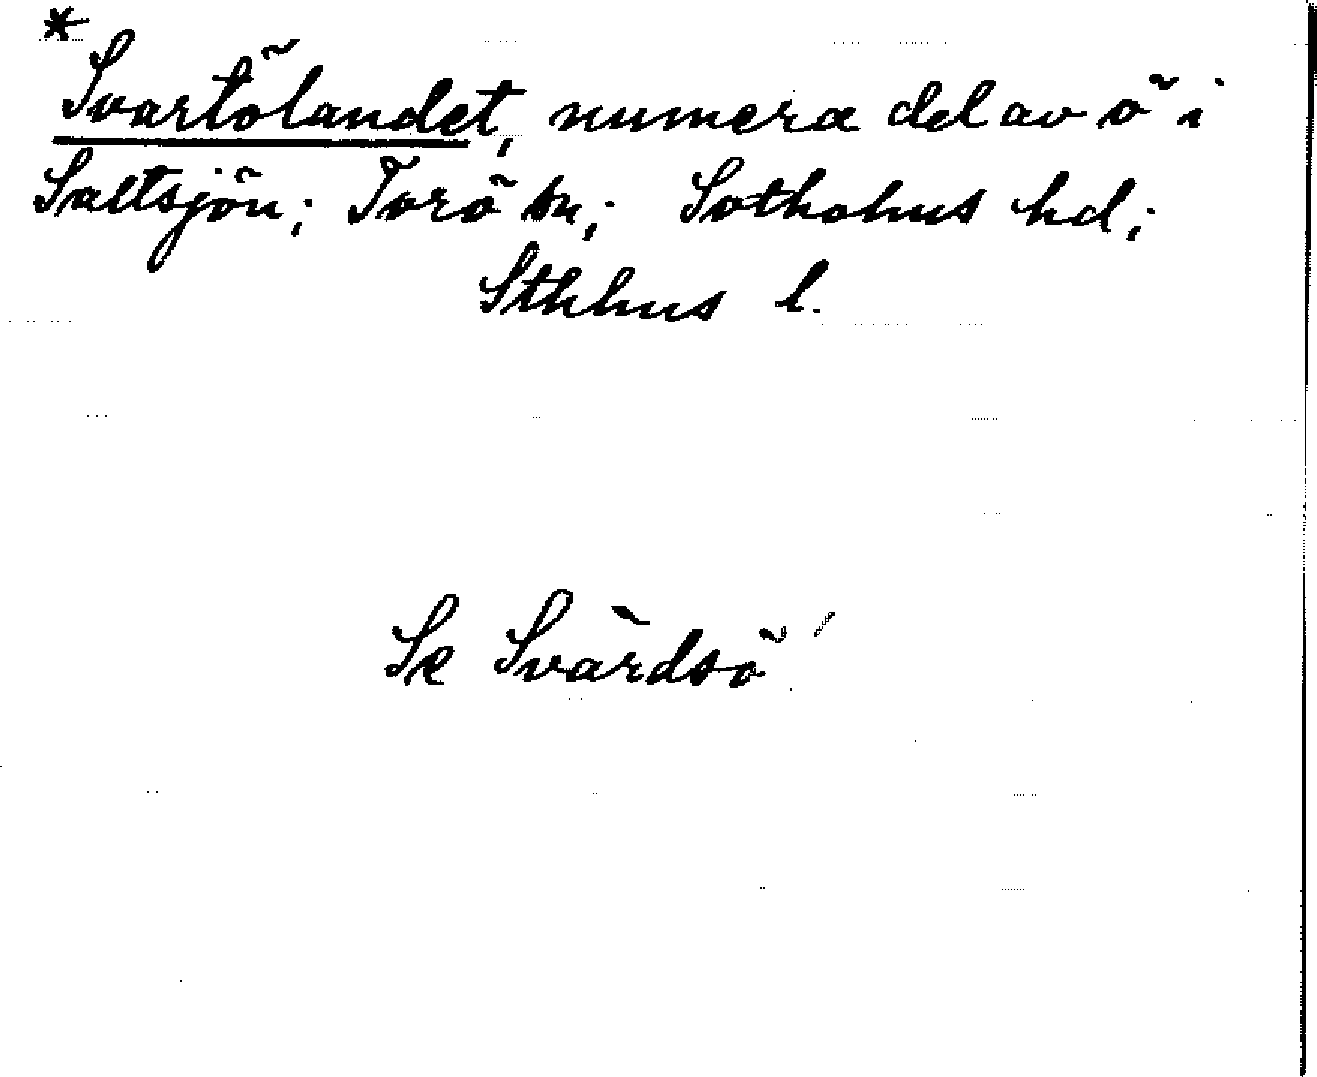 * Svartölandet, numera del av ö i
Saltsjön; Torö sn; Sotholms hd;
Sthlms l.
Se Svärdsö